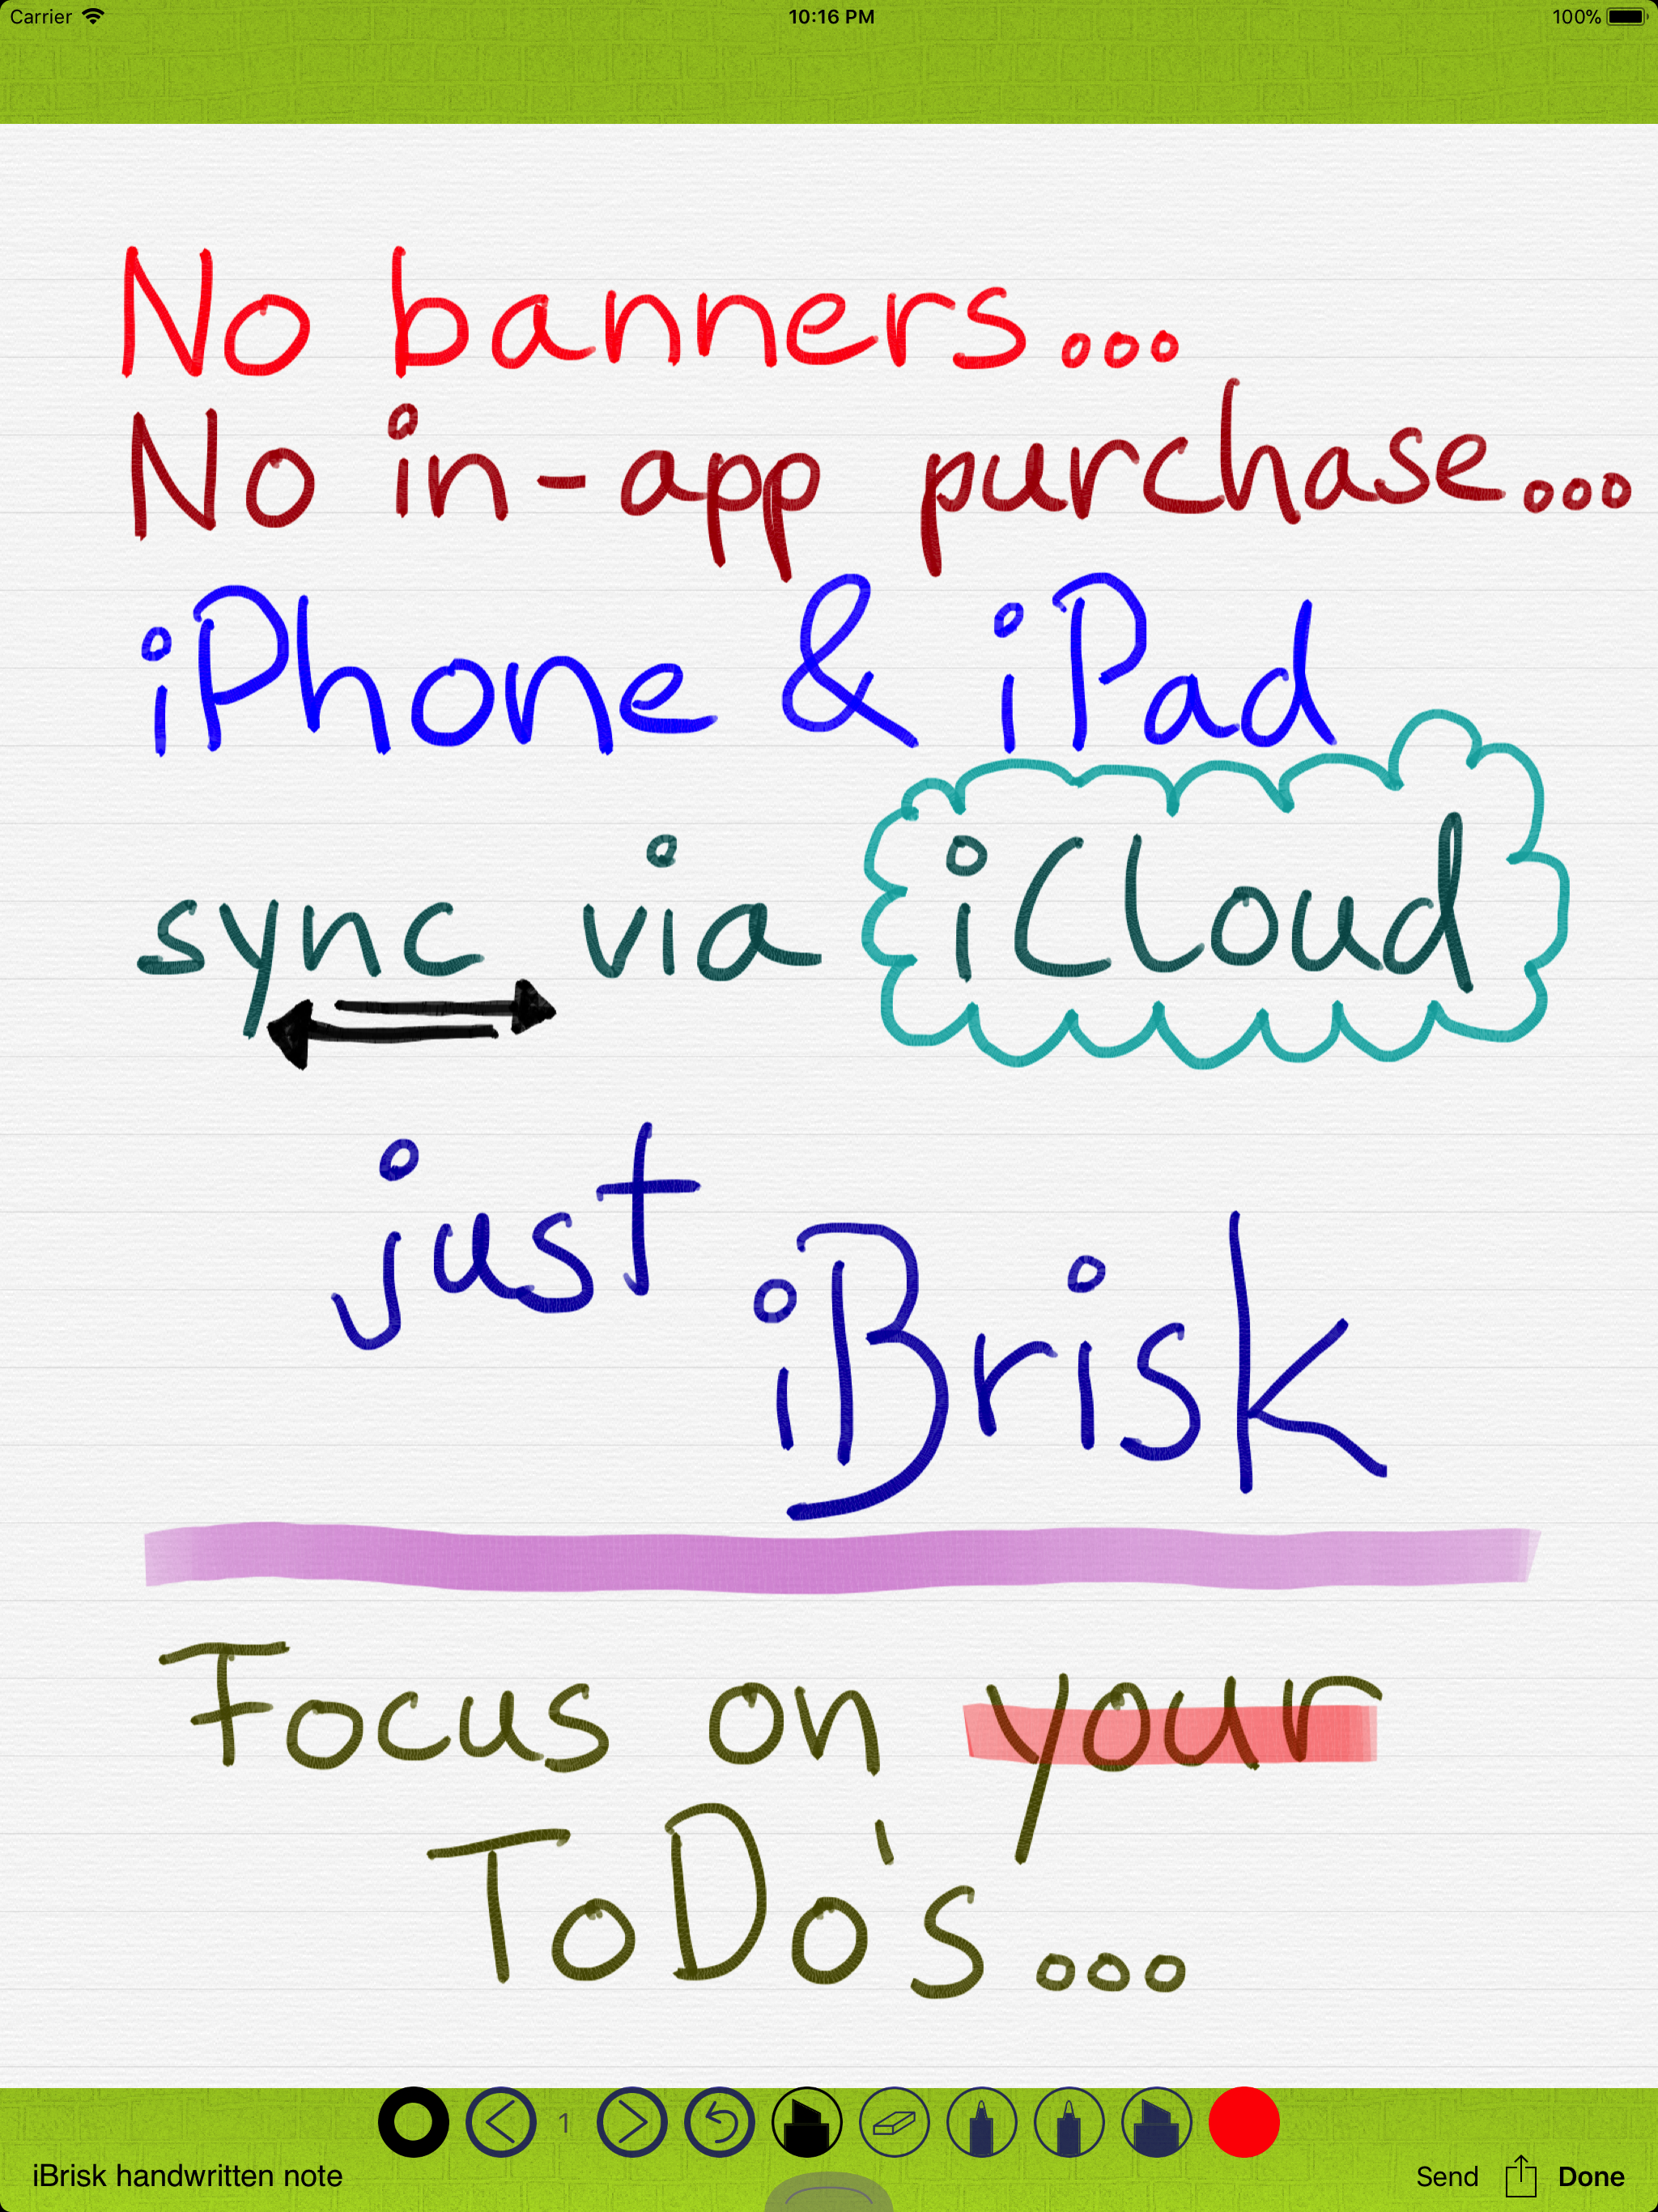 Carrier 10:16 PM 100%
No banners...
No in-app purchase...
iPhone & iPad
sync via iCloud
just iBrisk
Focus on your
ToDo's...
1
iBrisk handwritten note Send Done